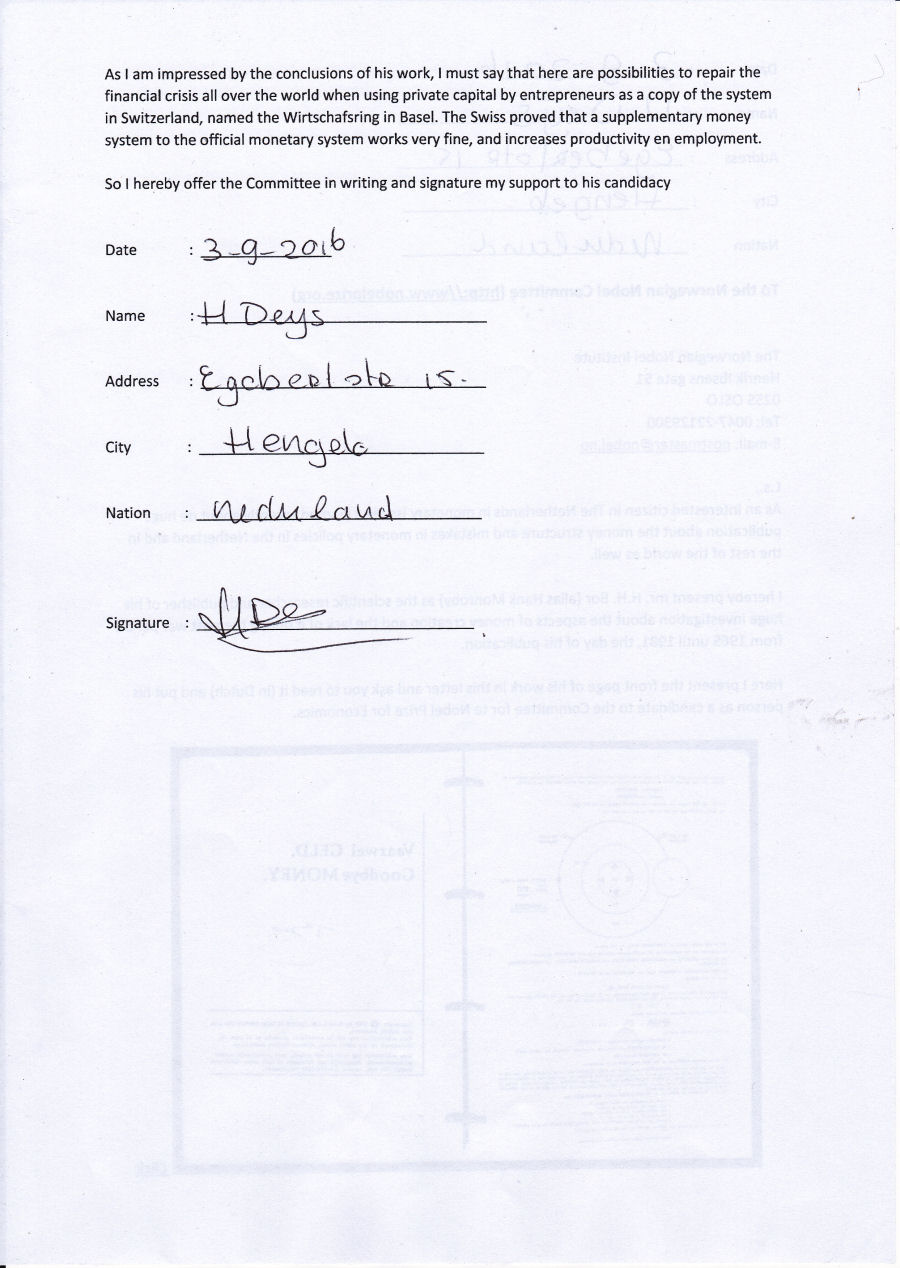 As I am impressed by the conclusions of his work, I must say that here are possibilities to repair the
financial crisis all over the world when using private capital by entrepreneurs as a copy of the system
in Switzerland, named the Wirtschafsring in Basel. The Swiss proved that a supplementary money
system to the official monetary system works very fine, and increases productivity en employment.
So I hereby offer the Committee in writing and signature my support to his candidacy
Date : 3-9-2016
Name : H Deys
Address : 15.
City : Hengelo
Nation : Nederland
Signature :